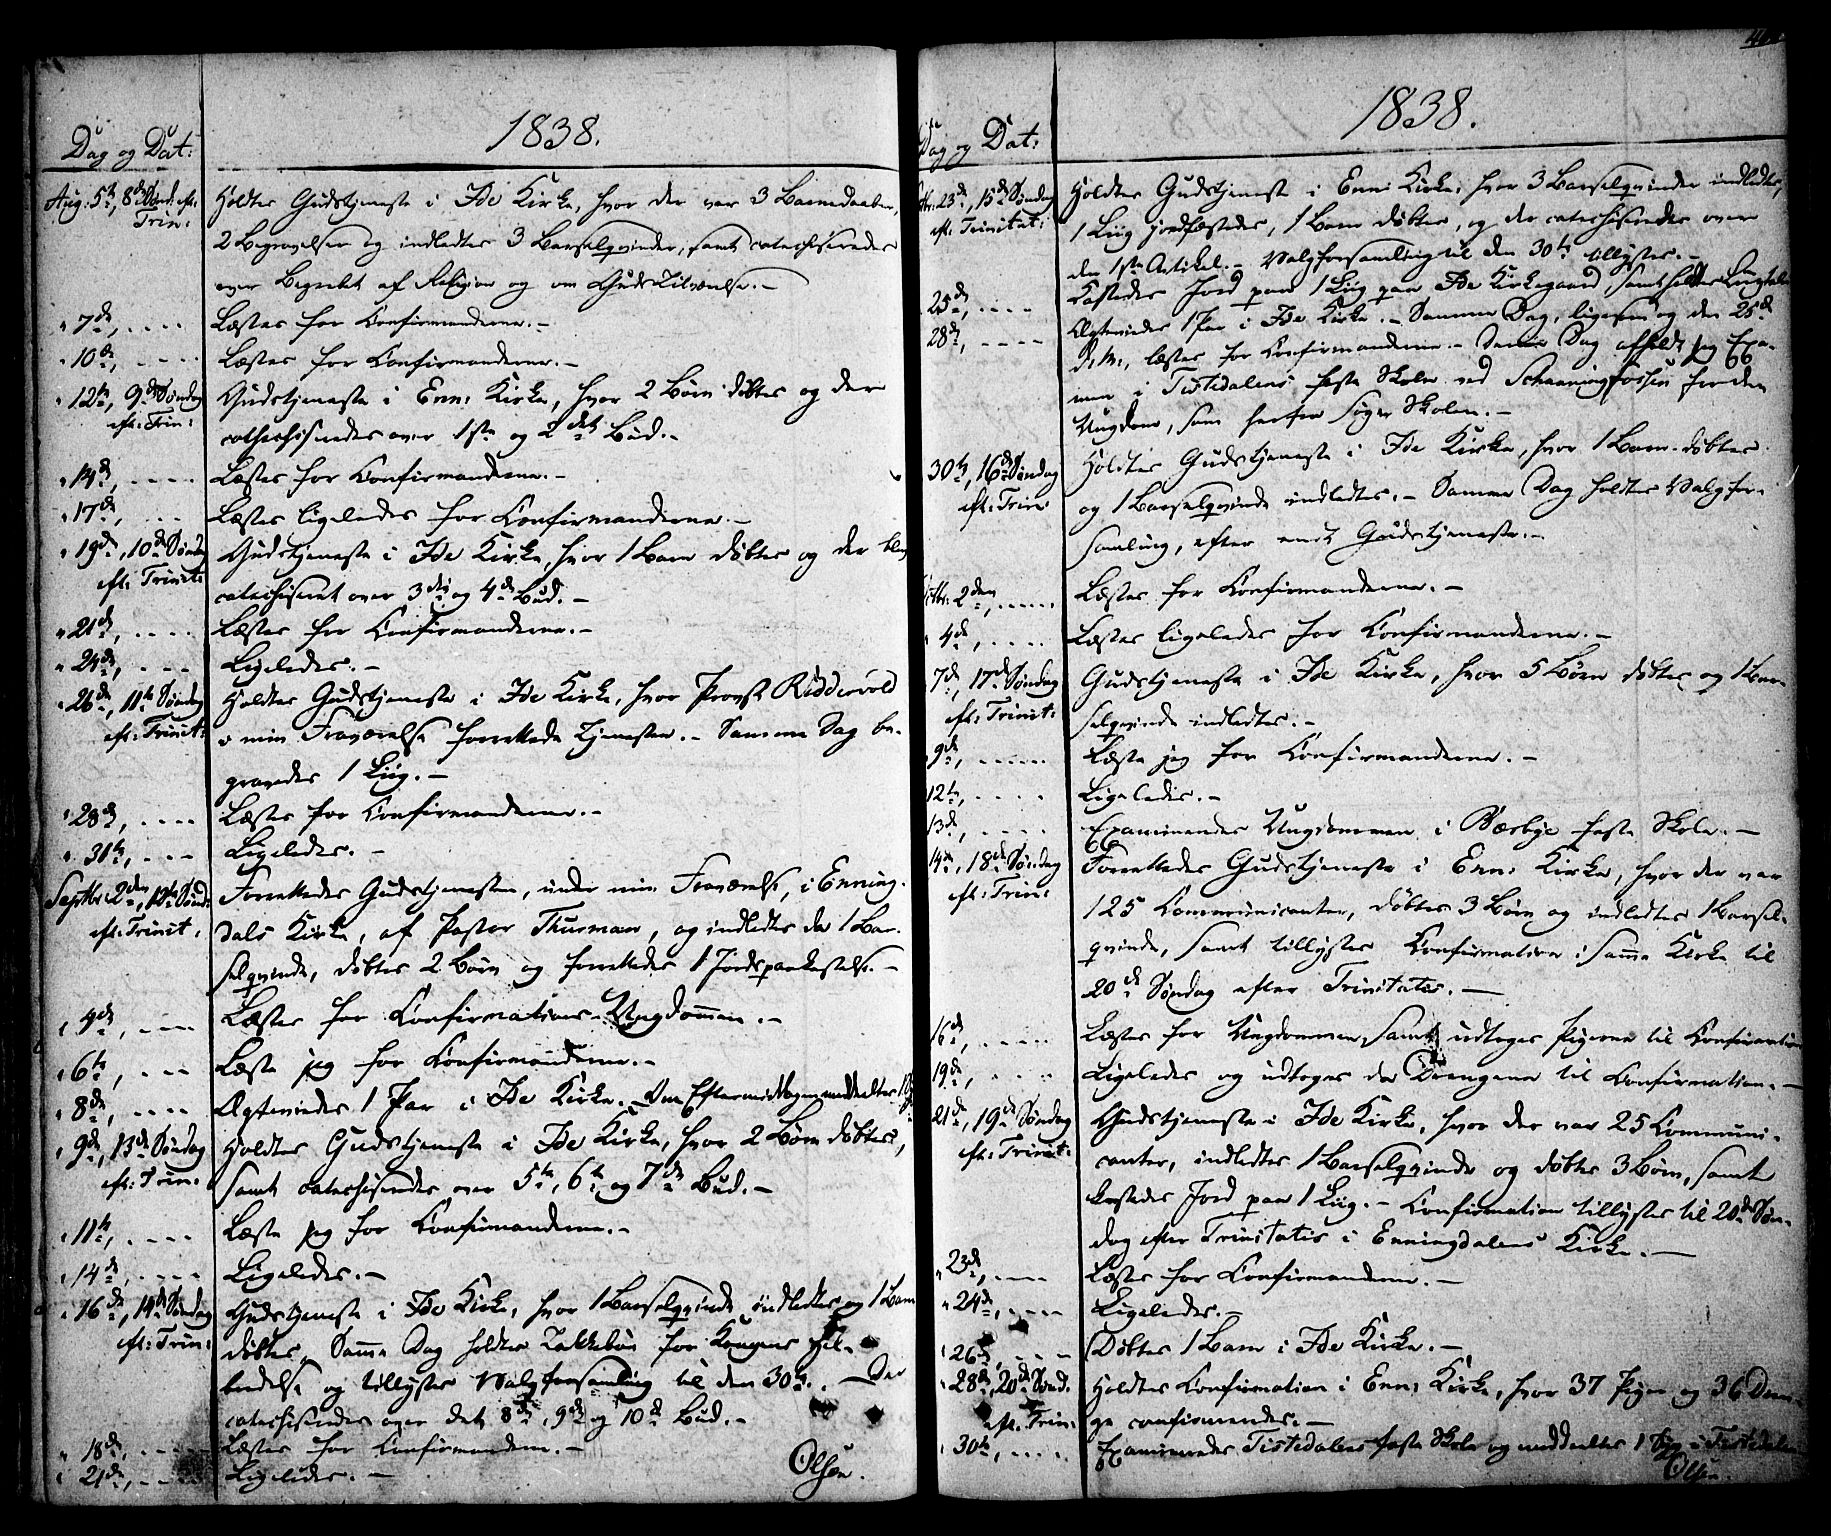 1838.
Dag og Dat:
Aug: 5te, 8de Sønd. eft: Trin: Holdtes Gudstjeneste i Ide Kirke, hvor der var 3 Barnedaaber,
2 Begravelser og indledtes 3 Barselqvinder, samt catechiseredes
over Begrebet af Religion og om Guds Tilværelse. -
" 7de, .... Læstes for Confirmanderne. -
" 10de, .... Læstes for Confirmanderne. -
" 12te, 9de Søndag eft: Trin: Gudstjeneste i Enn: Kirke, hvor 2 Børn døbtes og der
catechiseredes over 1ste og 2det Bud. -
" 14de, .... Læstes for Confirmanderne. -
" 17de, .... Læstes ligeledes for Confirmanderne. -
" 19de, 10de Søndag eft: Trinit: Gudstjeneste i Ide Kirke, hvor 1 Barn døbtes og der blev
catechiseret over 3die og 4de Bud. -
" 21de, .... Læstes for Confirmanderne. -
" 24de, .... Ligeledes. -
" 26de, 11te Søndag eft: Trinit: Holdtes Gudstjeneste i Ide Kirke, hvor Provst Riddervold
i min Fraværelse forrettede Tjenesten. - Samme Dag be-
gravedes 1 Liig. -
" 28de, .... Læstes for Confirmanderne. -
" 31te, .... Ligeledes. -
Septbr: 2den, 12te Sønd: eft: Trinit, Forrettedes Gudstjenesten, under min Fraværelse, i Enning-
dals Kirke, af Pastor Thurmann, og indledtes da 1 Bar-
selqvinde, døbtes 2 Børn og forrettedes 1 Jordspaakastelse. -
" 4de, .... Læstes for Confirmations-Ungdommen. -
" 6te, ... Læste jeg for Confirmanderne. -
" 8de, .... Ægteviedes 1 Par i Ide Kirke. - Om Eftermiddagen meddeeltes 1
" 9de, 13de Søndag eft: Trin: Holdtes Gudstjeneste i Ide Kirke, hvor 2 Børn døbtes,
samt catechiseredes over 5te, 6te og 7de Bud. -
" 11te, .... Læste jeg for Confirmanderne. -
" 14de, .... Ligeledes. -
" 16de, 14de Søndag eft: Trin: Gudstjeneste i Ide Kirke, hvor 1 Barselqvinde indledtes og 1 Barn
døbtes. Samme Dag holdtes Takkebøn for Kongens Hel-
bredelse og tillystes Valgforsamling til den 30te. - Der
catechiseredes over det 8de, 9de og 10de Bud. -
" 18de, .... Læstes for Confirmanderne. -
" 21de, .... Ligeledes. -
Olsen.
1838.
Dag og Dat:
23de, 15de Søndag eft: Trinitat: Holdtes Gudstjeneste i Enn: Kirke, hvor 3 Barselqvinder indledtes,
1 Liig jordfæstedes, 1 Barn døbtes, og der catechiseredes over
den 1ste Artikel. - Valgforsamling til den 30te tillystes. -
25de, .... Kastedes Jord paa 1 Liig paa Ide Kirkegaard, samt holdtes
28de, .... Ægteviedes 1 Par i Ide Kirke. - Samme Dag, ligesom og den 25de
d. M., læstes for Confirmanderne. - Denne Dag afholdt jeg Exa-
men i Tistedalens faste Skole ved Schaaningfossen for den
Ungdom, som herfra søger Skolen. -
30te, 16de Søndag eft: Trin: Holdtes Gudstjeneste i Ide Kirke, hvor 1 Barn døbtes
og 1 Barselqvinde indledtes. - Samme Dag holdtes Valgfor-
samling, efter endt Gudstjeneste. -
2den, ..... Læstes for Confirmanderne. -
4de, .... Læstes ligeledes for Confirmanderne. -
7de, 17de Søndag eft: Trinit: Gudstjeneste i Ide Kirke, hvor 5 Børn døbtes og 1 Bar-
selqvinde indledtes. -
9de, ..... Læste jeg for Confirmanderne. -
12te, .... Ligeledes. -
13de, .... Examineredes Ungdommen i Bærbye faste Skole. -
14de, 18de Søndag eft: Trin: Forrettedes Gudstjeneste i Enn: Kirke, hvor der var
125 Communicanter, døbtes 3 Børn og indledtes 1 Barsel-
qvinde, samt tillystes Confirmation i samme Kirke til
20de Søndag efter Trinitatis. -
16de, .... Læstes for Ungdommen, samt udtoges Pigerne til Confirmation
19de, .... Ligeledes og udtoges da Drengene til Confirmation. -
21de, 19de Søndag eft: Trinit: Gudstjeneste i Ide Kirke, hvor der var 25 Communi-
canter, indledtes 1 Barselqvinde og døbtes 3 Børn, samt
kastedes Jord paa 1 Liig. - Confirmation tillystes til 20de Søn-
dag efter Trinitatis i Enningdalens Kirke. -
23de, .... Læstes for Confirmanderne. -
" 24de, .... Ligeledes. -
" 26de, .... Døbtes 1 Barn i Ide Kirke. -
" 28de, 20de Sønd. eft. Trin: Holdtes Confirmation i Enn: Kirke, hvor 37 Piger og 36 Dren-
ge confirmeredes. -
" 30te, .... Examineredes Tistedalens faste Skole og meddeeltes 1 Syg i Tistedalen
Olsen.